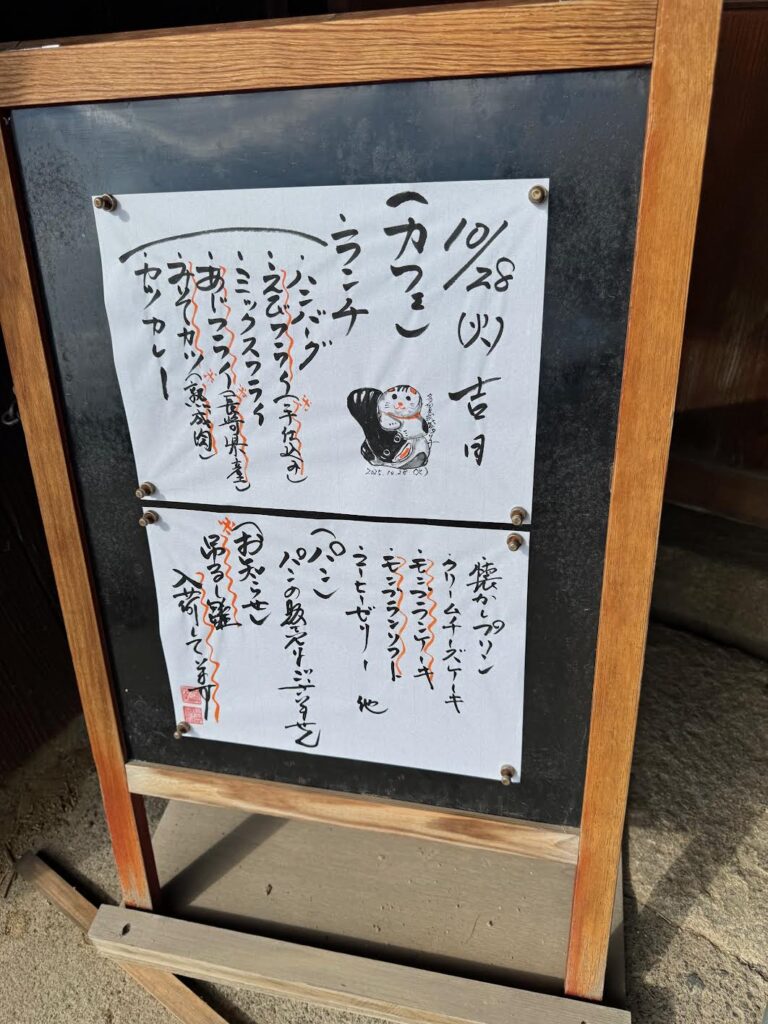 10/28(火)吉日
(カフェ)
・ランチ
・ハンバーグ
・えびフライ(手仕込み)
・ミックスフライ
・あじフライ(長崎県産)
・みそカツ(熟成肉)
・カツカレー
2025.10.28(火)
・懐かしプリン
・クリームチーズケーキ
・モンブランケーキ
・モンブランソフト
・コーヒーゼリー 他
(パン)
パンの販売はございません
(お知らせ)
吊るし雛
入荷して